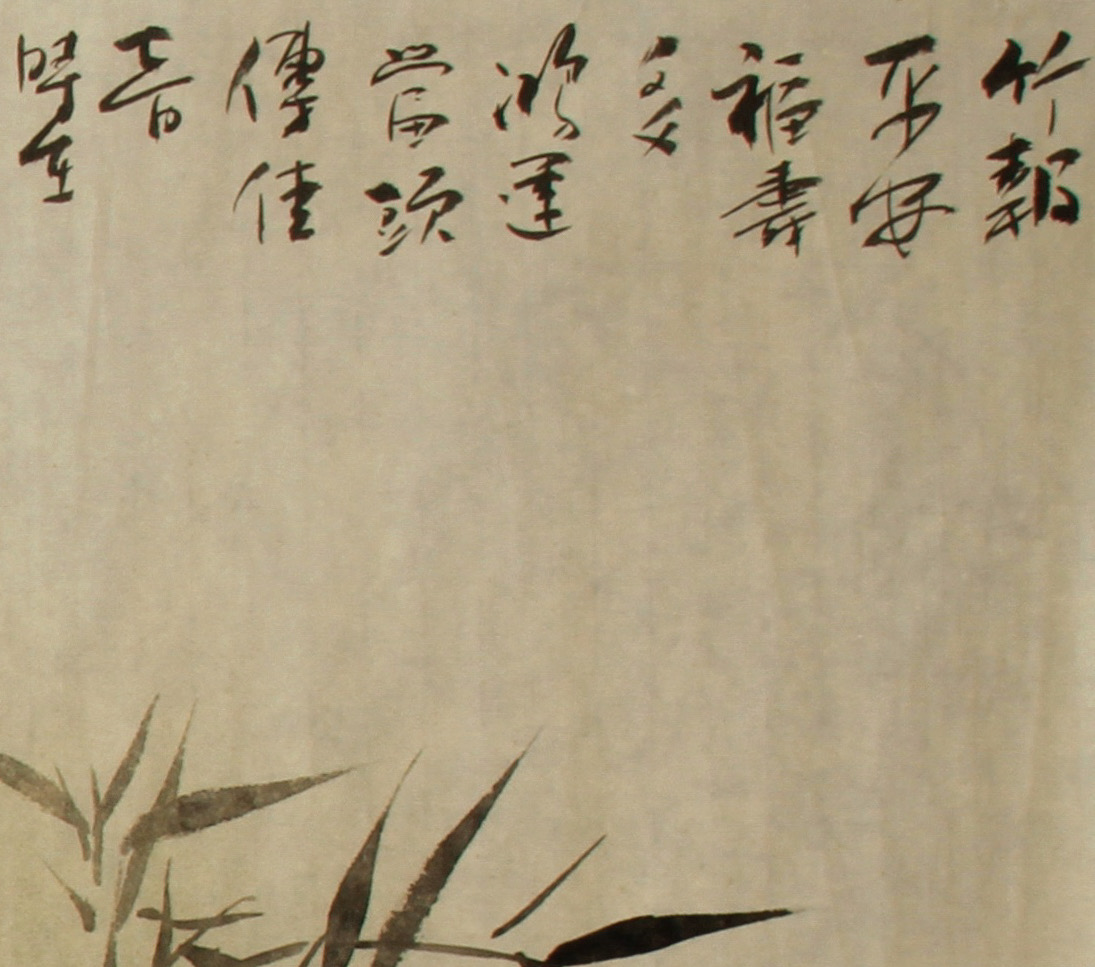 竹報
平安
福壽
多
鴻運
當頭
傳佳
音
時在